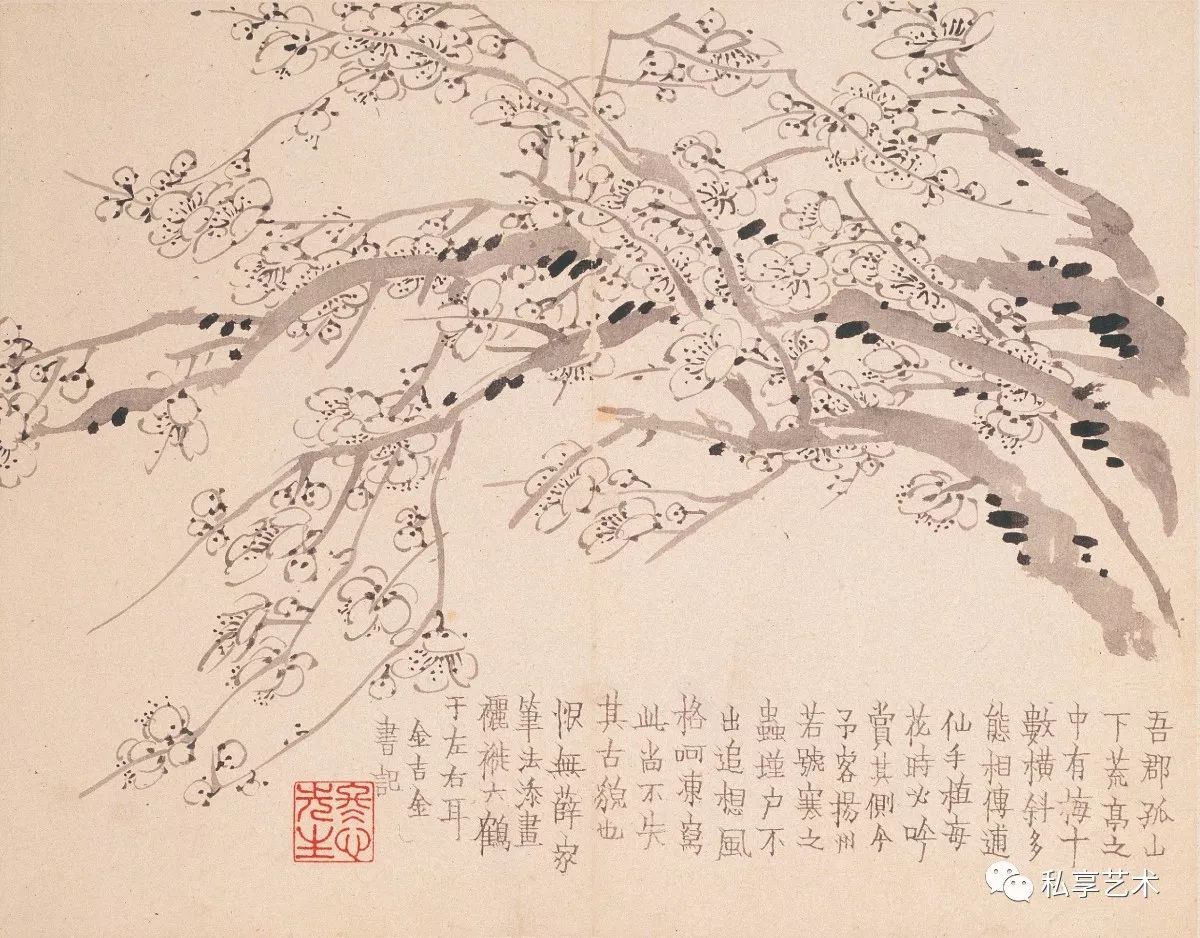 吾郡孤山
下荒亭之
中有梅十
數橫斜多
態相傳逋
仙手植每
花時必吟
賞其側今
予客揚州
若號寒之
蟲墐户不
出追想風
格呵凍寫
此尚不失
其古貌也
恨無薛家
筆法添畫
襹褷六鶴
于左右耳
金吉金
書記
冬心先生
私享艺术